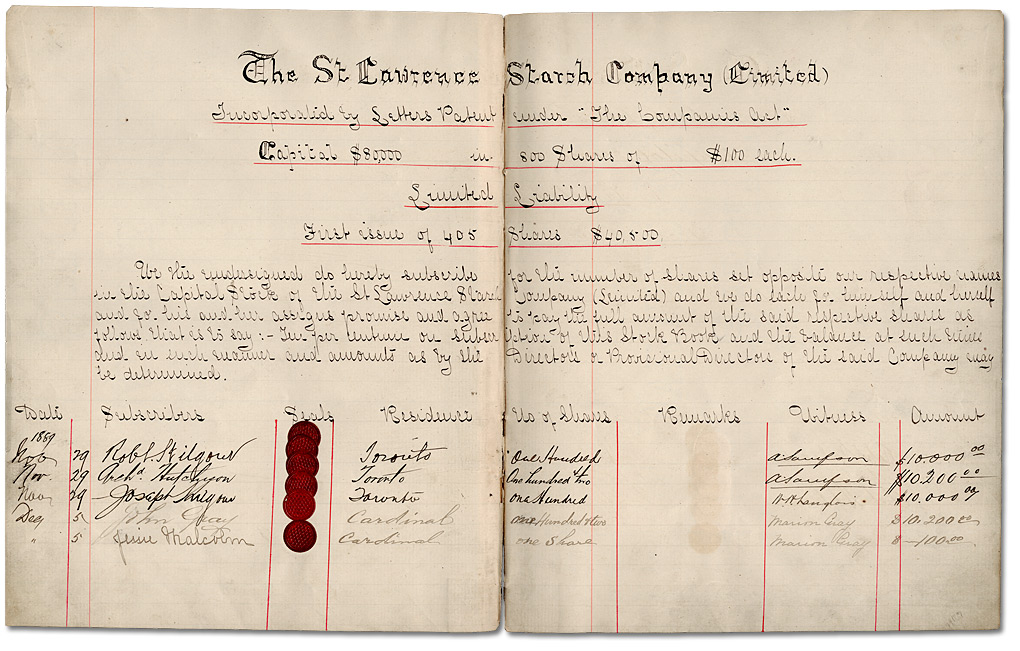 The St Lawrence Starch Company (Limited)
Incorporated by Letters Patent under "The Companies Act"
Capital $80,000 in 800 Shares of $100 each.
Limited Liability
First issue of 405 Shares $40,500.
We the undersigned do hereby subscribe for the number of shares set opposite our respective names
in the Capital Stock of the St Lawrence Starch Company (Limited) and we do each for himself and herself
and for his and her assigns promise and agree to pay the full amount of the said respective shares as
follows that is to say :- Ten per centum on subscription of this Stock Book and the balance at such times
and in such manner and amounts as by the Directors or Provisional Directors of the said Company may
be determined.
Date Subscribers Seals Residence No of Shares Remarks Witness Amount
1889
Nov 29 Robt Kilgour Toronto One Hundred $10.000 00
Nov. 29 Archd Hutchison Toronto One hundred & two $10.200 00
Nov 29 Joseph Kilgour Toronto One Hundred $10.000 00
Dec 5 John Gray Cardinal one Hundred & two Marion Gray $10.200 00
" 5 Jessie Malcolm Cardinal one Share Marion Gray $-100 00